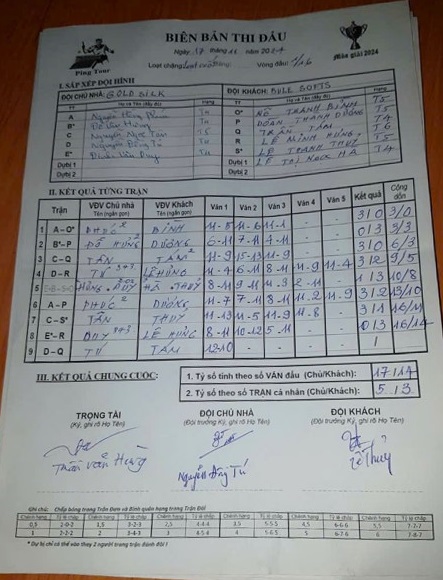 BIÊN BẢN THI ĐẤU
Ping Tour
Mùa giải 2024
Ngày 17 tháng 11 năm 2024
Loạt chặng: Lượt cuối
Vòng đấu:
I. SẮP XẾP ĐỘI HÌNH
ĐỘI CHỦ NHÀ: GOLD SILK
ĐỘI KHÁCH: BULL SOFTS
TT Họ và Tên (đầy đủ) Hạng
TT Họ và Tên (đầy đủ) Hạng
A Nguyễn Hồng T4
O* THANH BÌNH T5
B* Đỗ Văn Hùng T4
P ĐOÀN THANH DƯƠNG T4
C Nguyễn Ngọc Tân T5
Q TRẦN TÂM T6
D Nguyễn Đồng Tú T4
R LÊ MINH HÙNG T5
E* Duy T4
S* LÊ THANH THUỶ T5
Dự bị 1
Dự bị 1 LÊ THỊ NGỌC HÀ T4
Dự bị 2
Dự bị 2
II. KẾT QUẢ TỪNG TRẬN
Trận VĐV Chủ nhà Tên (ngắn gọn) VĐV Khách Tên (ngắn gọn) Ván 1 Ván 2 Ván 3 Ván 4 Ván 5 Kết quả Cộng dồn
1 A – O* PHÚC BÌNH 11-5 11-6 11-1 3 0 3/0
2 B* – P ĐỖ HÙNG DƯƠNG 6-11 7-11 4-11 0 3 3/3
3 C – Q TÂN TÂM 11-9 15-13 11-9 3 0 6/3
4 D – R TÚ LÊ HÙNG 11-4 6-11 8-11 11-9 11-4 3 2 9/5
5 HÙNG + DUY HÀ + THUỶ 8-11 9-11 11-3 2-11 1 3 10/8
6 A – P PHÚC DƯƠNG 11-7 7-11 8-11 11-2 11-9 3 2 13/10
7 C – S* TÂN THUỶ 11-13 11-5 11-9 11-8 3 1 16/11
8 E* – R DUY LÊ HÙNG 8-11 10-12 5-11 0 3 16/14
9 D – Q TÚ TÂM 12-10 1
III. KẾT QUẢ CHUNG CUỘC:
1. Tỷ số tính theo số VÁN đấu (Chủ/Khách): 17 14
2. Tỷ số theo số TRẬN cá nhân (Chủ/Khách): 5 3
TRỌNG TÀI
ĐỘI CHỦ NHÀ
ĐỘI KHÁCH
(Ký, ghi rõ Họ Tên)
(Đội trưởng Ký, ghi rõ Họ Tên)
(Đội trưởng Ký, ghi rõ Họ Tên)
Trần Văn Hùng
Nguyễn Đồng Tú
Lê Thuỷ
Ghi chú: Chấp bóng trong Trận Đơn và Bình quân hạng trong Trận Đôi
Chênh hạng Tỷ lệ chấp Chênh hạng Tỷ lệ chấp Chênh hạng Tỷ lệ chấp Chênh hạng Tỷ lệ chấp Chênh hạng Tỷ lệ chấp Chênh hạng Tỷ lệ chấp
* Dự bị chỉ có thể thay thế 2 người trong trận đánh đôi !